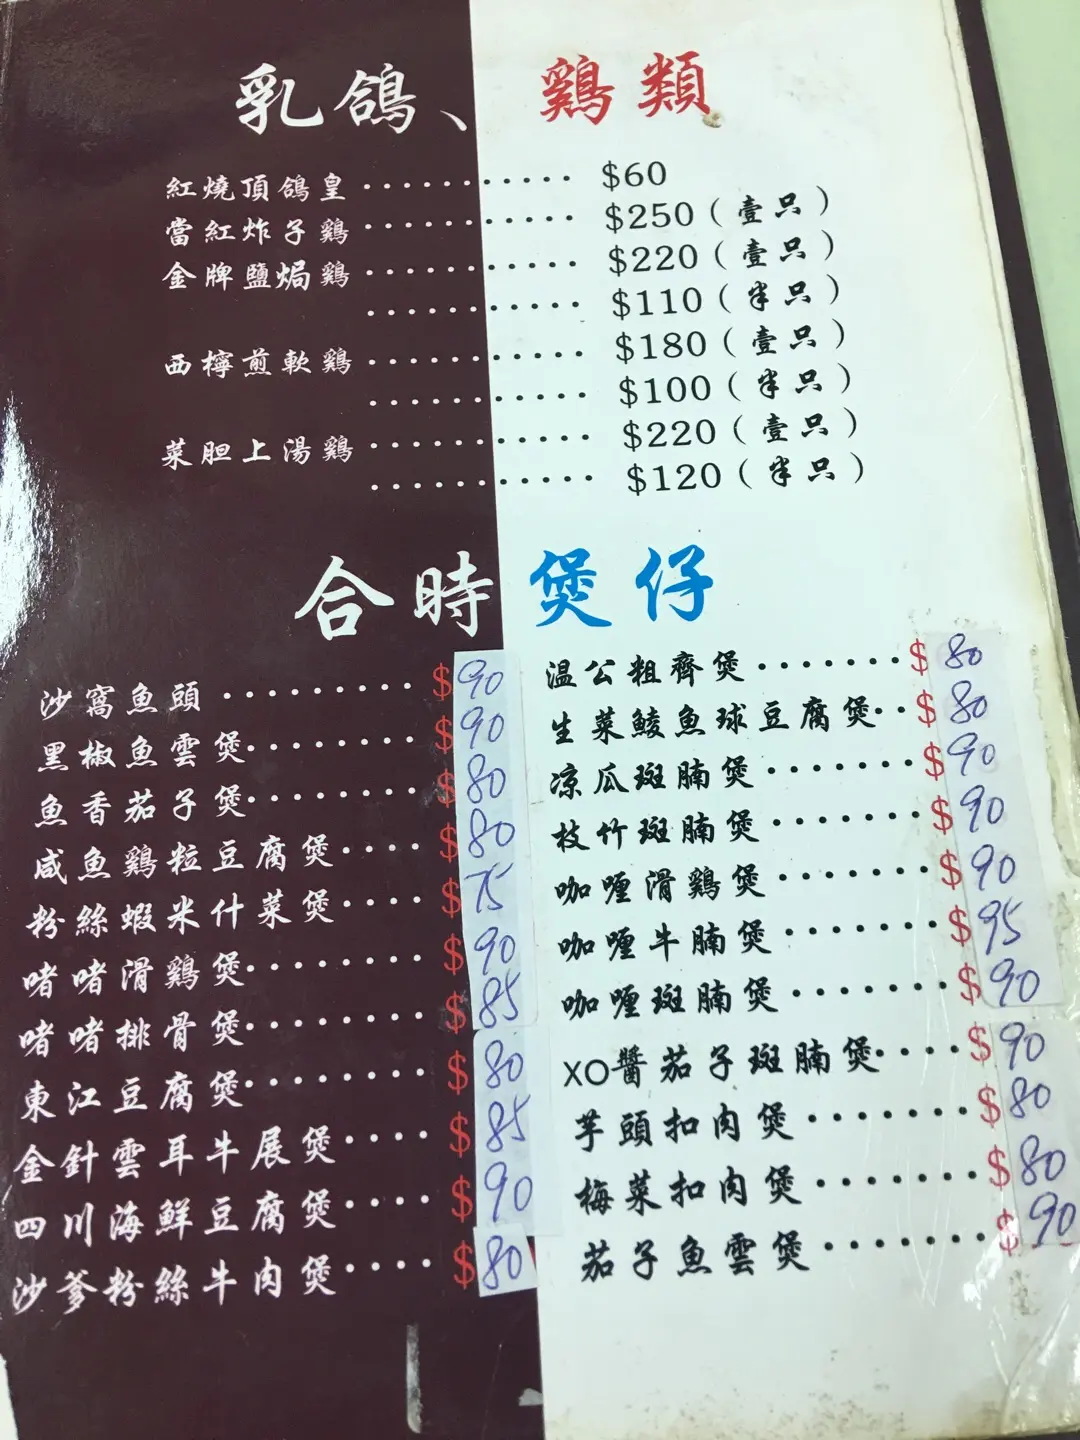 乳鴿、鷄類
紅燒頂鴿皇 ........... $60
當紅炸子鷄 ........... $250（壹只）
金牌鹽焗鷄 ........... $220（壹只）
........... $110（半只）
西檸煎軟鷄 ........... $180（壹只）
........... $100（半只）
菜胆上湯鷄 ........... $220（壹只）
........... $120（半只）
合時煲仔
沙窩魚頭 ········· $90
黑椒魚雲煲········ $90
魚香茄子煲········ $80
咸魚鷄粒豆腐煲···· $80
粉絲蝦米什菜煲···· $75
啫啫滑鷄煲········ $90
啫啫排骨煲········ $85
東江豆腐煲········ $80
金針雲耳牛展煲···· $85
四川海鮮豆腐煲···· $90
沙爹粉絲牛肉煲···· $80
温公粗齊煲······· $80
生菜鯪魚球豆腐煲·· $80
凉瓜斑腩煲······· $90
枝竹斑腩煲······· $90
咖喱滑鷄煲······· $90
咖喱牛腩煲······· $95
咖喱斑腩煲······· $90
XO醬茄子斑腩煲···· $90
芋頭扣肉煲······· $80
梅菜扣肉煲······· $80
茄子魚雲煲······· $90